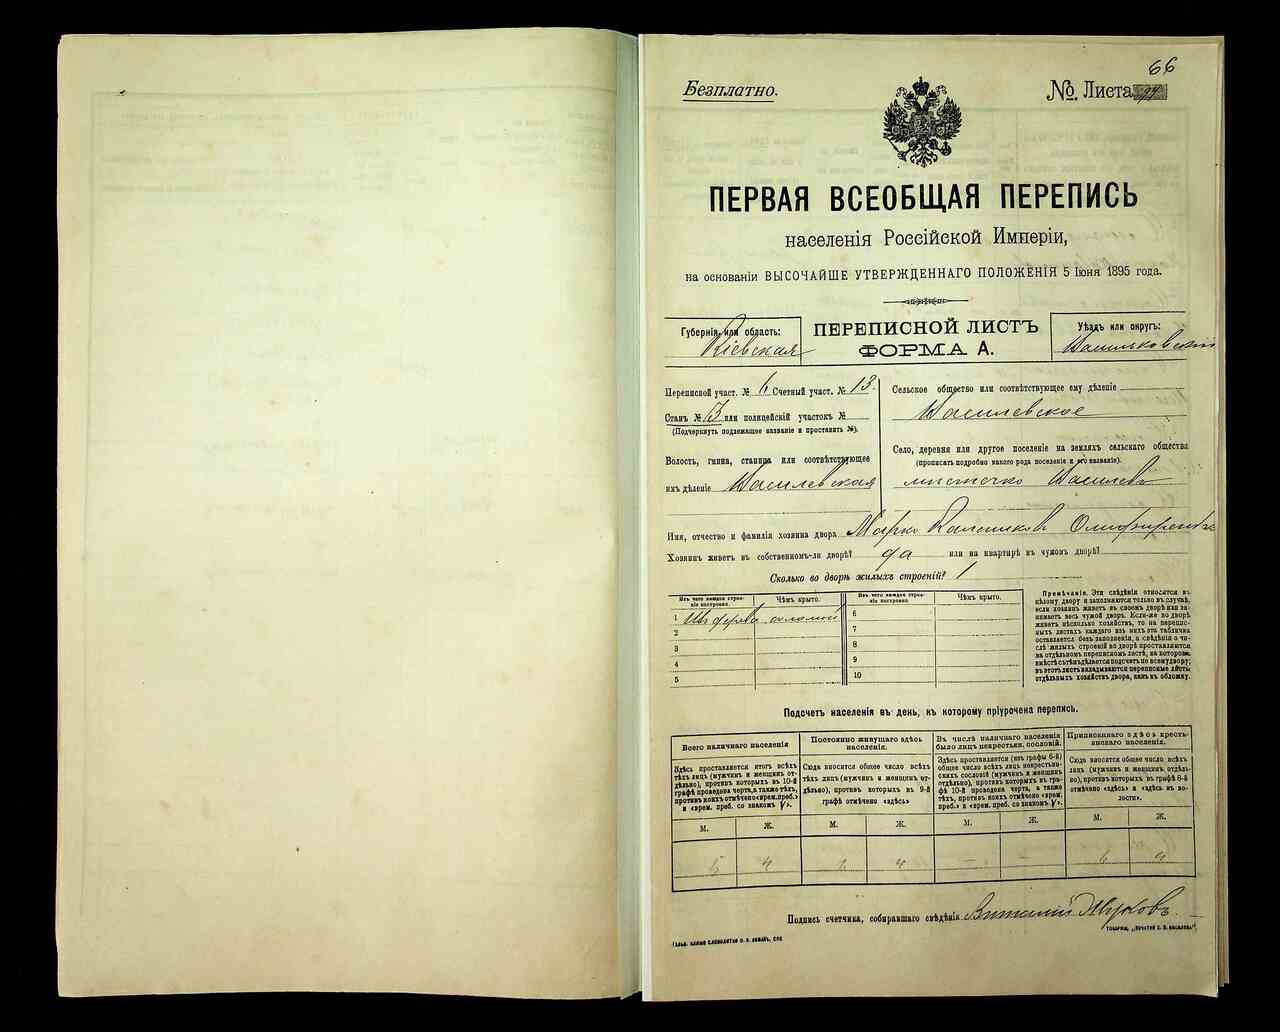 66
Безплатно.
№ Листа
ПЕРВАЯ ВСЕОБЩАЯ ПЕРЕПИСЬ
населенія Россійской Имперіи,
на основаніи ВЫСОЧАЙШЕ УТВЕРЖДЕННАГО ПОЛОЖЕНІЯ 5 Іюня 1895 года.
Губернія или область:
Кіевская
ПЕРЕПИСНОЙ ЛИСТЪ
ФОРМА А.
Уѣздъ или округъ:
Васильковскій
Переписной участ. № 6 Счетный участ. № 13.
Станъ № 3 или полицейскій участокъ №
(Подчеркнуть подлежащее названіе и проставить №).
Волость, гмина, станица или соотвѣтствующее
имъ дѣленіе Василевская
Сельское общество или соотвѣтствующее ему дѣленіе
Василевское
Село, деревня или другое поселеніе на земляхъ сельскаго общества
(прописать подробно какого рода поселеніе и его названіе).
мѣстечко Василевъ
Имя, отчество и фамилія хозяина двора Марко
Хозяинъ живетъ въ собственномъ-ли дворѣ? да или на квартирѣ въ чужомъ дворѣ?
Сколько во дворѣ жилыхъ строеній? 1
Изъ чего каждое строеніе построено.
Чѣмъ крыто.
Изъ чего каждое строеніе построено.
Чѣмъ крыто.
1 Изъ дерева соломой
2
3
4
5
6
7
8
9
10
Примѣчаніе. Эти свѣдѣнія относятся къ
цѣлому двору и заполняются только въ случаѣ,
если хозяинъ живетъ въ своемъ дворѣ или за-
нимаетъ весь чужой дворъ. Если-же во дворѣ
живетъ нѣсколько хозяйствъ, то на перепис-
ныхъ листахъ каждаго изъ нихъ эта табличка
оставляется безъ заполненія, а свѣдѣнія о чи-
слѣ жилыхъ строеній во дворѣ проставляются
на отдѣльномъ переписномъ листѣ, на которомъ
вмѣстѣ съ тѣмъ дѣлается подсчетъ по всему двору;
въ этотъ листъ вкладываются переписные листы
отдѣльныхъ хозяйствъ двора, какъ въ обложку.
Подсчетъ населенія въ день, къ которому пріурочена перепись.
Всего наличнаго населенія
Здѣсь проставляется итогъ всѣхъ
тѣхъ лицъ (мужчинъ и женщинъ от-
дѣльно), противъ которыхъ въ 10-й
графѣ проведена черта, а также тѣхъ,
противъ коихъ отмѣчено «врем. преб.»
и «врем. преб. со знакомъ V».
Постоянно живущаго здѣсь
населенія.
Сюда вносится общее число всѣхъ
тѣхъ лицъ (мужчинъ и женщинъ от-
дѣльно), противъ которыхъ въ 9-й
графѣ отмѣчено «здѣсь»
Въ числѣ наличнаго населенія
было лицъ некрестьян. сословій.
Здѣсь проставляется (изъ графы 6-й)
общее число всѣхъ лицъ некрестьян-
скихъ сословій (мужчинъ и женщинъ
отдѣльно), противъ которыхъ въ гра-
фѣ 10-й проведена черта, а также
тѣхъ, противъ коихъ отмѣчено «врем.
преб.» и «врем. преб. со знакомъ V».
Приписаннаго здѣсь кресть-
янскаго населенія.
Сюда вносится общее число всѣхъ
лицъ (мужчинъ и женщинъ отдѣль-
но), противъ которыхъ въ графѣ 8-й
отмѣчено «здѣсь» и «здѣсь въ во-
лости».
М. Ж. М. Ж. М. Ж. М. Ж.
5 4 6 4 – – 6 4
Подпись счетчика, собиравшаго свѣдѣнія Виталій